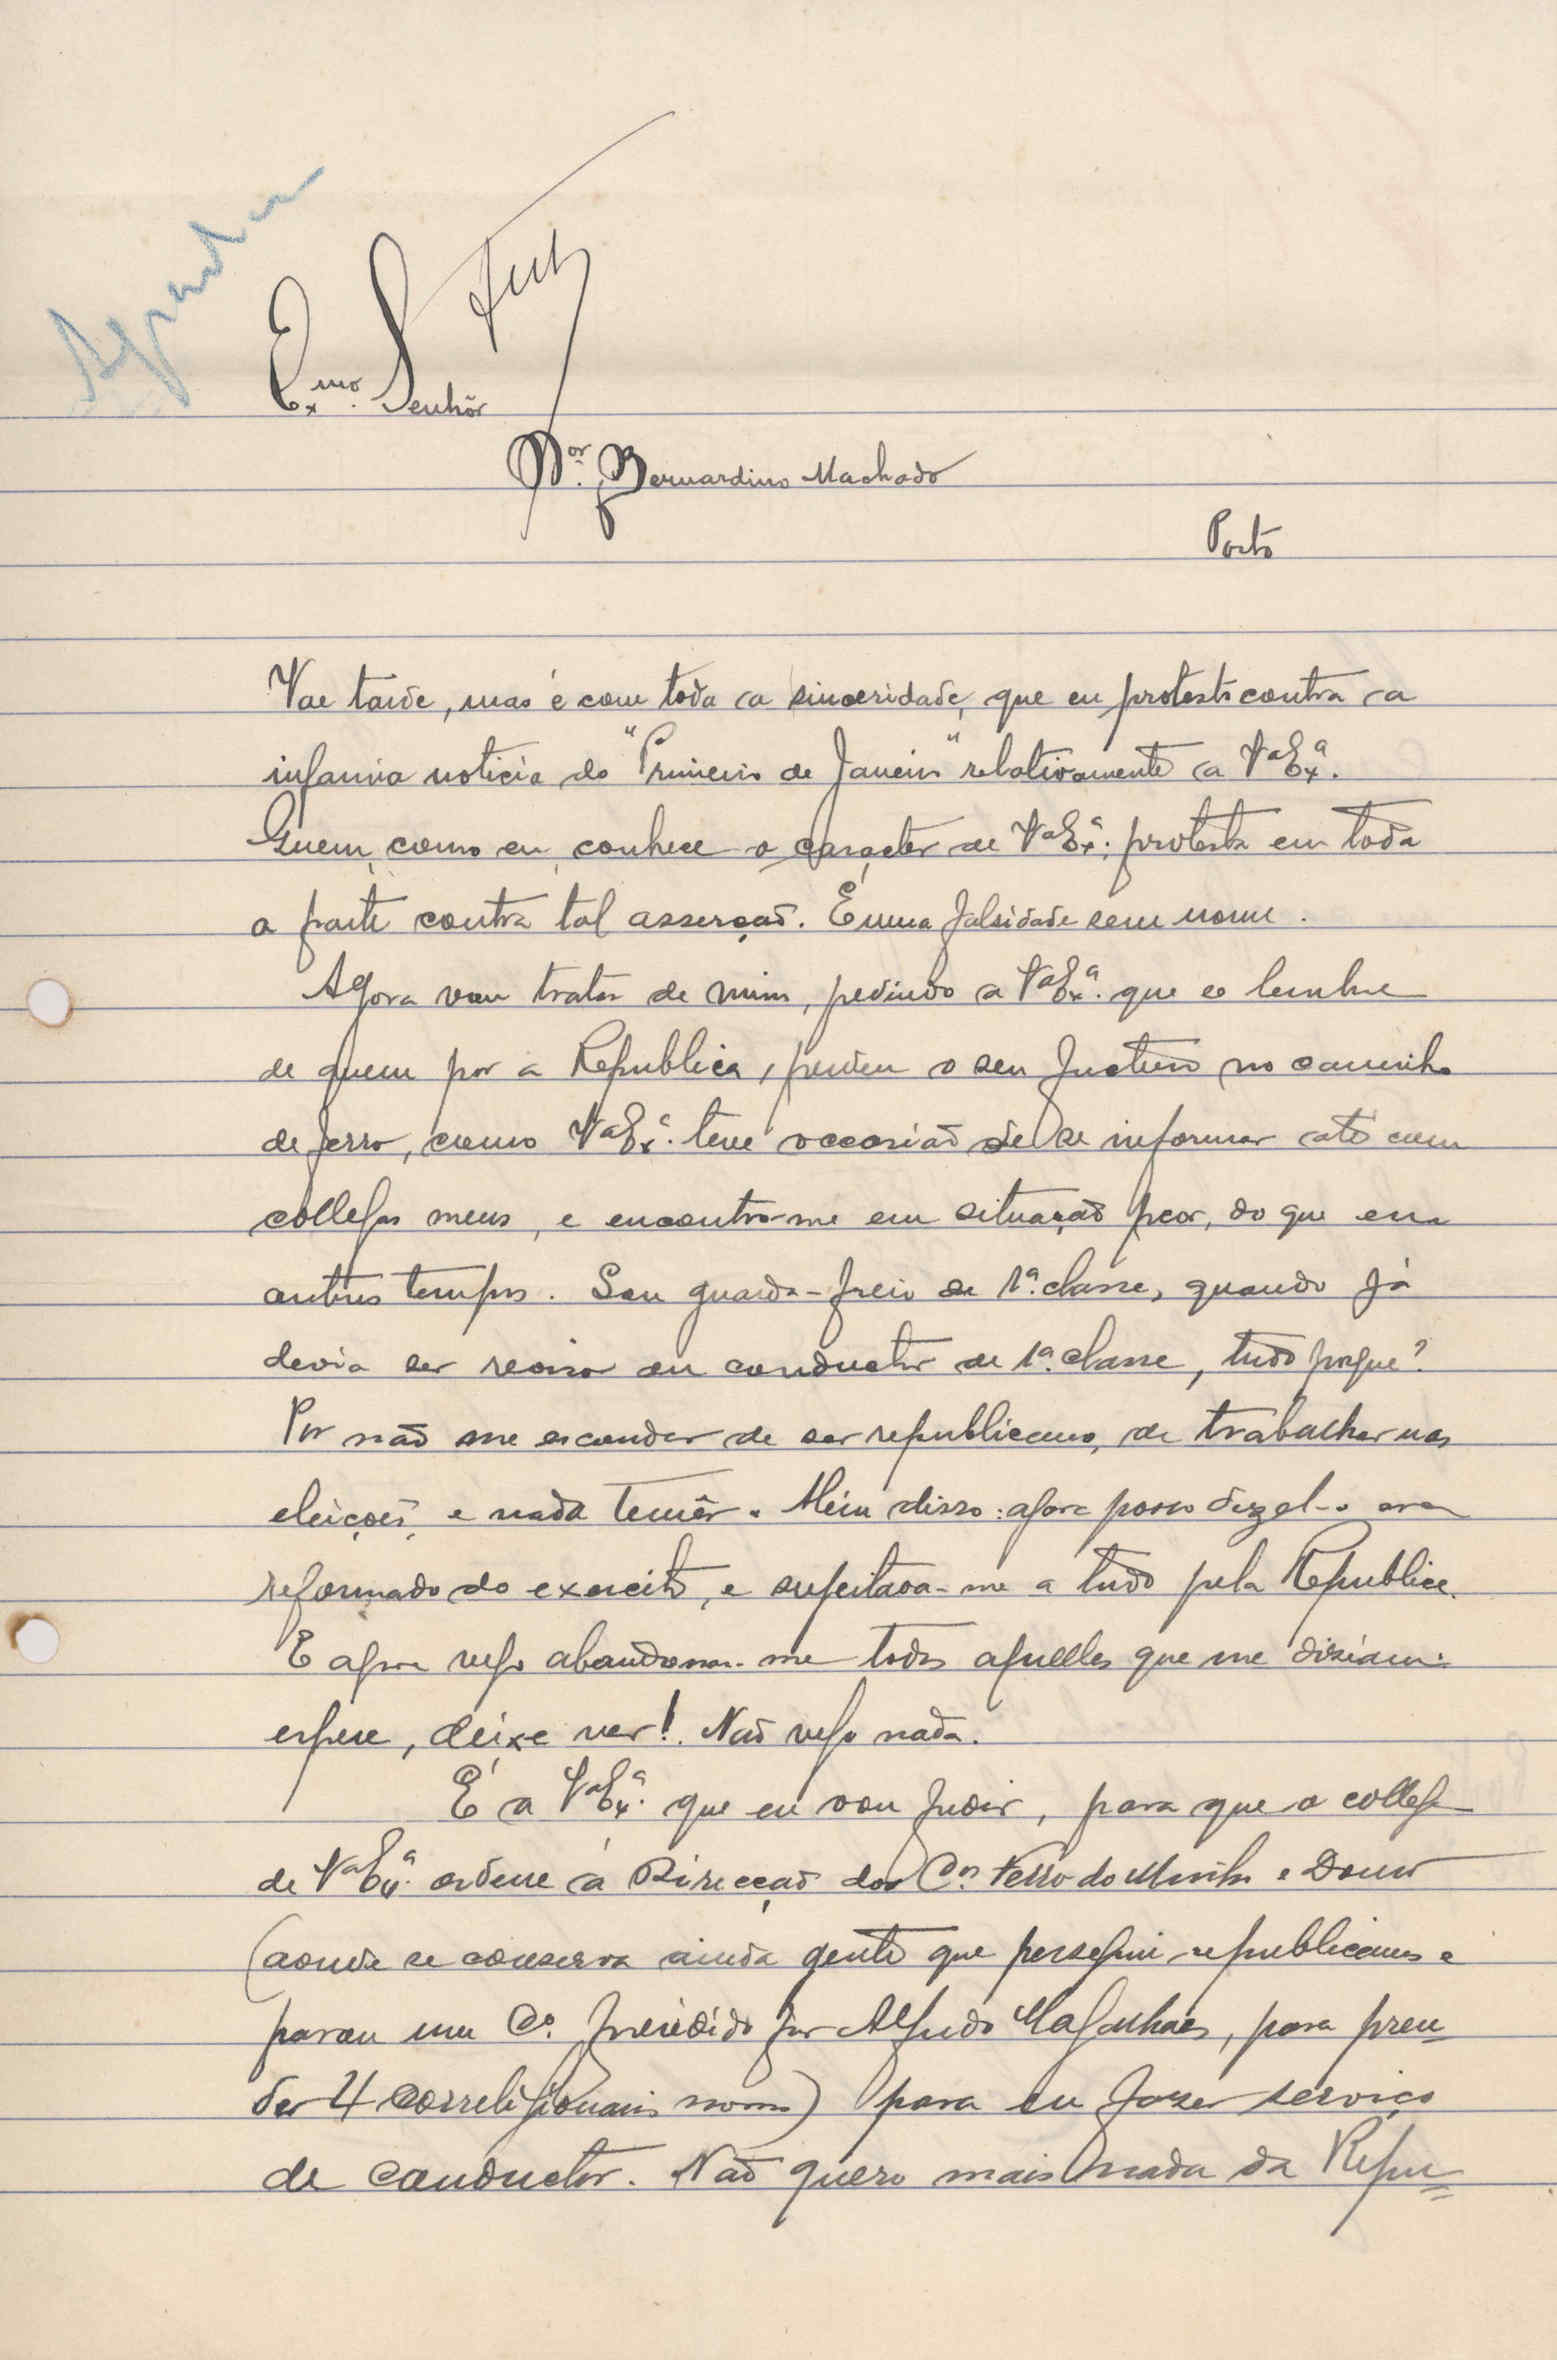 Exmo. Senhôr
Dor. Bernardino Machado
Porto
Vae tarde, mas é com toda a sinceridade, que eu protesto contra a
infamia noticia do "Primeiro de Janeiro" relativamente a Va Exa.
Quem, como eu, conhece o caracter de Va Exa. protesta em toda
a parte contra tal asserção. É uma falsidade sem nome.
Agora vou tratar de mim, pedindo a Va Exa. que se lembre
de quem por a Republica, perdeu o seu futuro no caminho
de ferro, como Va Exa. teve occasião de se informar até com
collegas meus, e encontro-me em situação peor, do que em
outros tempos. Sou guarda-freio de 1a. classe, quando já
devia ser revisor ou conductor de 1a. classe, tudo porque?
Por não me esconder de ser republicano, de trabalhar nas
eleições, e nada temêr. Além disso: agora posso dizel-o era
reformado do exercito, e sugeitava-me a tudo pela Republica.
E agora vejo abandonar-me todos aquelles que me diziam:
espere, deixe ver!. Não vejo nada.
É a Va Exa. que eu vou pedir, para que o collega
de Va Exa. ordene á Direcção dos Cos. Ferro do Minho e Douro
(aonde se conserva ainda gente que persegui republicanos e
parou um Co. presidido por Alfredo Magalhães, para pren-
der 4 correligionarios nossos) para eu fazer serviço
de conductor. Não quero mais nada da Repu=